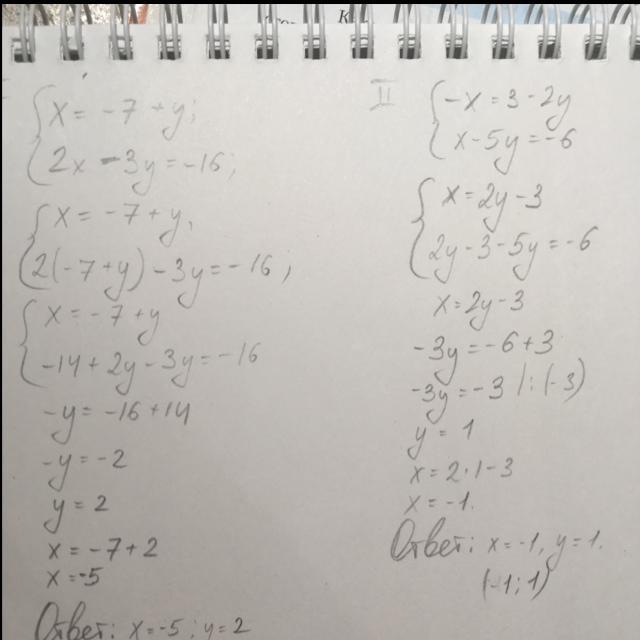 x = -7 + y;
2x - 3y = -16;
x = -7 + y;
2(-7 + y) - 3y = -16;
x = -7 + y
-14 + 2y - 3y = -16
-y = -16 + 14
-y = -2
y = 2
x = -7 + 2
x = -5
Ответ: x = -5; y = 2
II
-x = 3 - 2y
x - 5y = -6
x = 2y - 3
2y - 3 - 5y = -6
x = 2y - 3
-3y = -6 + 3
-3y = -3 |: (-3)
y = 1
x = 2·1 - 3
x = -1.
Ответ: x = -1, y = 1.
(-1; 1)